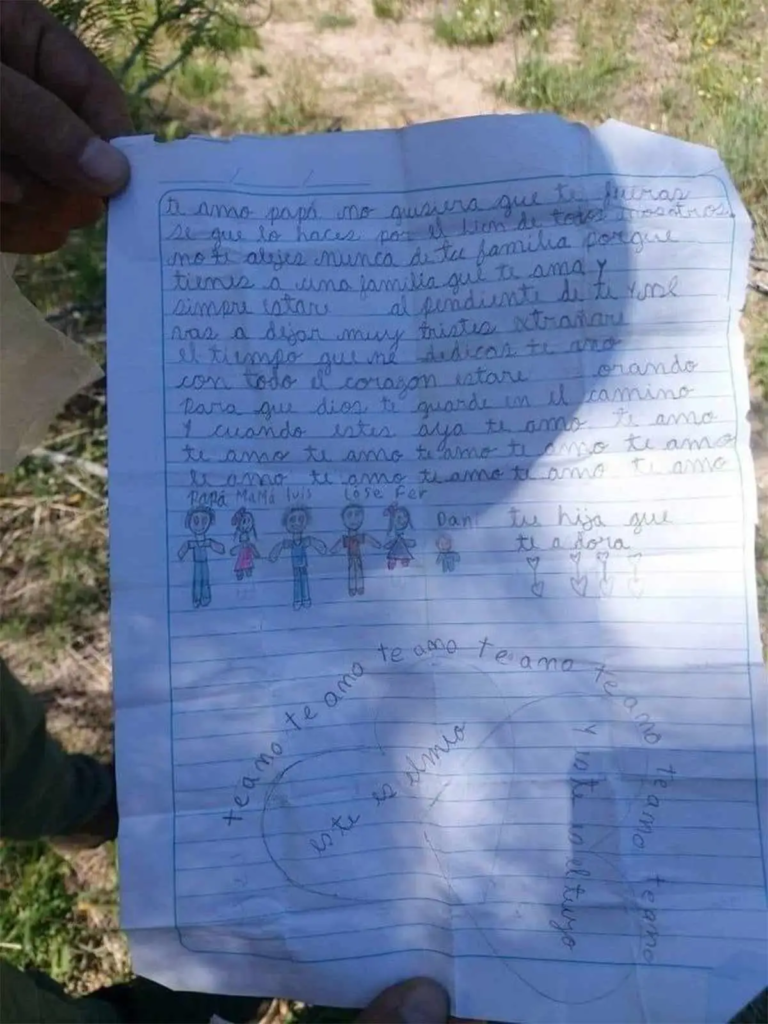 te amo papá no quisiera que te fueras
se que lo haces por el bien de totos nosotros
no te alejes nunca de tu familia porque
tienes a una familia que te ama y
simpre estare al pendiente de ti y
vas a dejar muy tristes xtrañare
el tiempo que me dedicas te amo
con todo el corazon estare orando
para que dios te guarde en el camino
y cuando estes aya te amo te amo
te amo te amo te amo te amo te amo
te amo te amo te amo te amo te amo
Papá Mamá luis Jose Fer
Dani tu hija que
te adora
te amo te amo te amo te amo te amo te amo te amo
este es el mio
y este es el tuyo